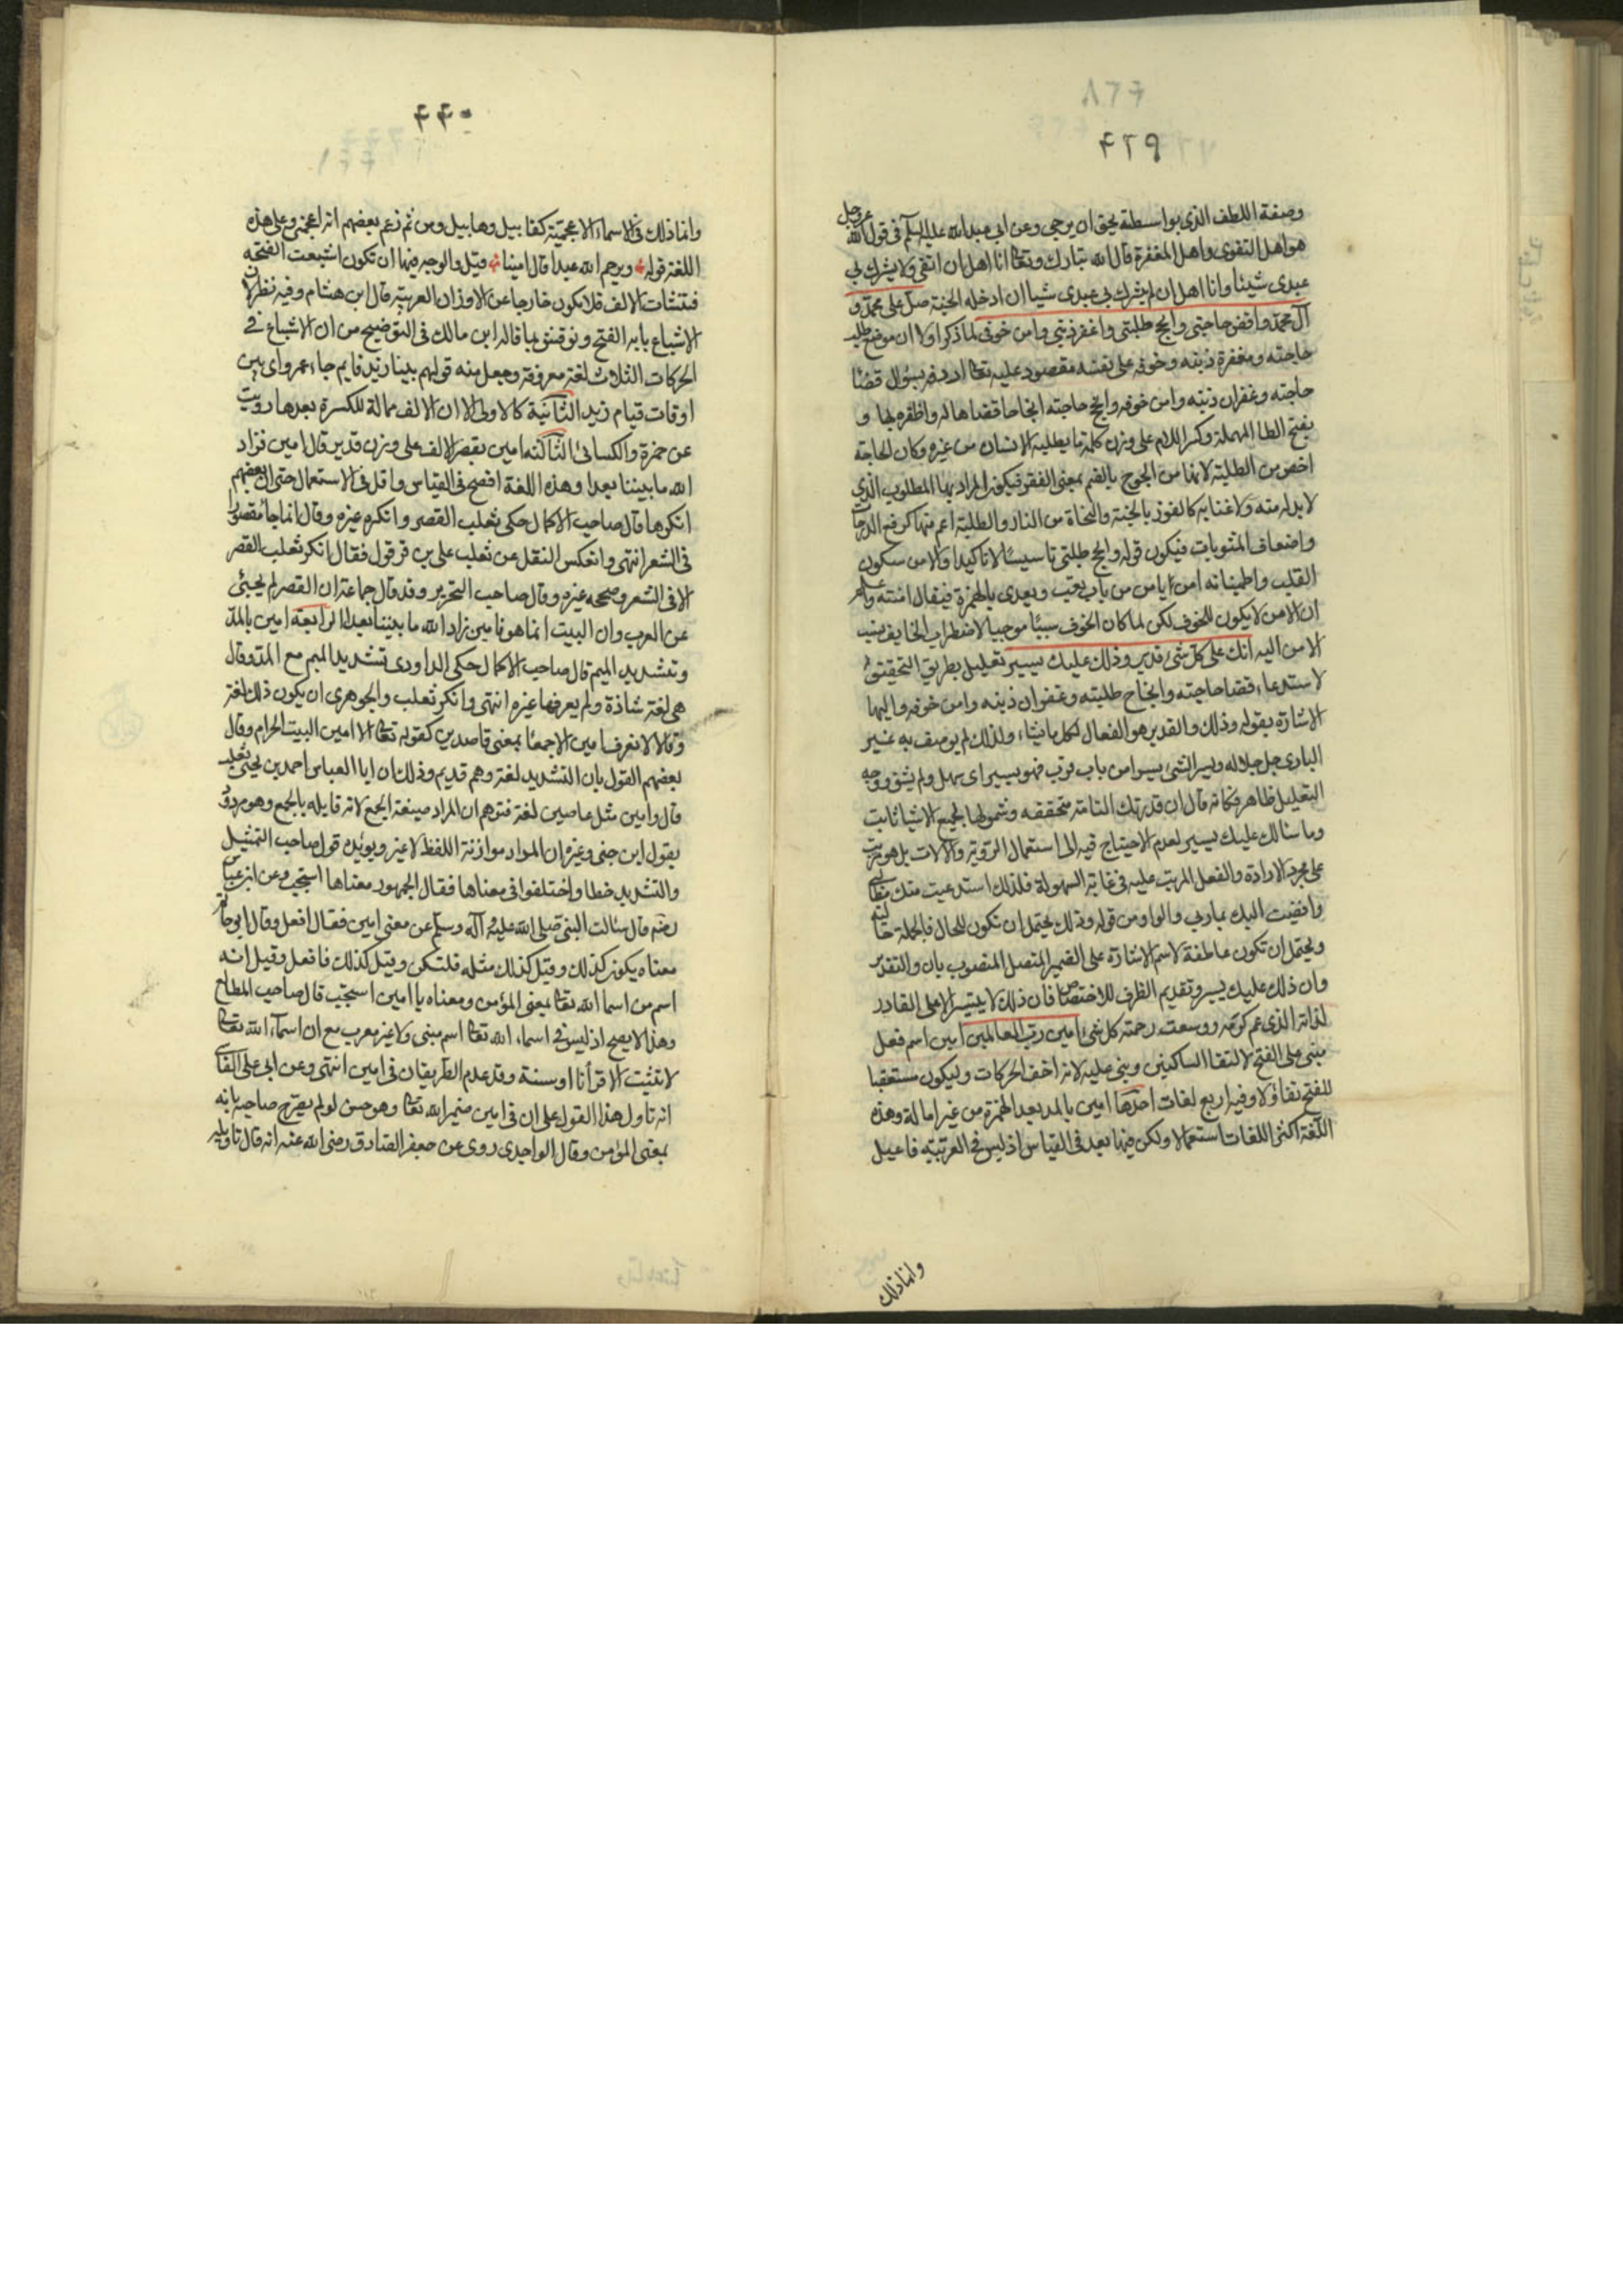 ٤٢٩
وصفة اللطف الذى بواسطة يحق ان يرجى وعن ابى عبدالله عليه السلم فى قول الله عزوجل
هو اهل التقوى واهل المغفرة قال الله تبارك وتعالى انا اهل ان اتقى ولا يشرك بى
عبدى شيئا وانا اهل ان لم يشرك بى عبدى شيا ان ادخله الجنة صل على محمد و
آل محمد واقض حاجتى وانجح طلبتى واغفر ذنبى وامن خوفى لما ذكر اولا ان موضع طلب
حاجته ومغفرة ذنبه وخوفه على نفسه مقصود عليه تعالى اردفه بسؤال قضا
حاجته وغفران ذنبه وامن خوفه وانجح حاجته انجاحا قضاها له واظفره بها و
بفتح الطا المهملة وكسر اللام على وزن كلمة ما يطلبه الانسان من غيره وكان الحاجة
اخص من الطلبة لانها من الحوج بالضم بمعنى الفقر فيكون المراد بها المطلوب الذى
لا بد له منه ولا غنا به كالفوز بالجنة والنجاة من النار والطلبة اعم منها كرفع الدرجات
واضعاف المثوبات فيكون قوله وانجح طلبتى تاسيسا لا تاكيدا والامن سكون
القلب واطمينانه امن يامن من باب تعب ويعدى بالهمزة فيقال امنته
ان الامن لا يكون للخوف لكن لما كان الخوف سببا موجبا لاضطراب الخايف نسب
الامن اليه انك على كل شئ قدير وذلك عليك يسير تعليل بطريق التحقيق
لاستدعاء قضا حاجته وانجاح طلبته وغفران ذنبه وامن خوفه واليها
الاشارة بقوله وذلك والقدير هو الفعال لكل ما يشاء ولذلك لم يوصف به غير
البارى جل جلاله ويسر الشئ يسرا من باب قرب فهو يسير اى سهل ولم يشق ووجه
التعليل ظاهر فكانه قال ان قدرتك التامة متحققة وشمولها لجميع الاشيا ثابت
وما سالك عليك يسير لعدم الاحتياج فيه الى استعمال الروية والآلات بل هو مرتب
على مجرد الارادة والفعل المرتب عليه فى غاية السهولة فلذلك استدعيت منك
وافضت اليك يا ربى والواو من قوله وذلك يحتمل ان تكون للحال فالجملة حالية
ويحتمل ان تكون عاطفة لاسم الاشارة على الضمير المتصل المنصوب بان والتقدير
وان ذلك عليك يسير وتقديم الظرف للاختصاص فان ذلك لا يتيسر الا على القادر
لذاته الذى عم كرمه ووسعت رحمته كل شئ امين رب العالمين امين اسم فعل
مبنى على الفتح لالتقا الساكنين وبنى عليه لانه اخف الحركات وليكون مستعقبا
للفتح تفاؤلا وفيه اربع لغات احدها امين بالمد بعد الهمزة من غير امالة وهذه
اللغة اكثر اللغات استعمالا ولكن فيها بعد فى القياس اذ ليس فى العربية فاعيل
وانما ذلك
٤٤٠
وانما ذلك فى الاسماء الاعجمية كقابيل وهابيل ومن ثم زعم بعضهم انه اعجمى وعلى هذه
اللغة قوله ويرحم الله عبدا قال امينا قيل والوجه فيها ان تكون اشبعت الفتحة
فنشات الالف فلا يكون خارجا عن الاوزان العربية قال ابن هشام وفيه نظر لان
الاشباع بابه الفتح ونوقش بما قاله ابن مالك فى التوضيح من ان الاشباع فى
الحركات الثلاث لغة معروفة وجعل منه قولهم بينا زيد قايم جاء عمرو اى بين
اوقات قيام زيد الثانية كالاولى الا ان الالف ممالة للكسرة بعدها رويت
عن حمزة والكسائى الثالثة امين بقصر الالف على وزن قدير قال امين فزاد
الله ما بيننا بعدا وهذه اللغة افصح فى القياس واقل فى الاستعمال حتى ان بعضهم
انكرها قال صاحب الاكمال حكى ثعلب القصر وانكره غيره وقال انما جا مقصورا
فى الشعر انتهى وانعكس النقل عن ثعلب على بن قرقول فقال انكر ثعلب القصر
الا فى الشعر وصححه غيره وقال صاحب التحرير وقد قال جماعة ان القصر لم يجئ
عن العرب وان البيت انما هو فامين زاد الله ما بيننا بعدا الرابعة امين بالمد
وتشديد الميم قال صاحب الاكمال حكى الداودى تشديد الميم مع المد وقال
هى لغة شاذة ولم يعرفها غيره انتهى وانكر ثعلب والجوهرى ان يكون ذلك لغة
وقالا لا نعرف امين الا جمعا بمعنى قاصدين كقوله تعالى ولا امين البيت الحرام وقال
بعضهم القول بان التشديد لغة وهم قديم وذلك ان ابا العباس احمد بن يحيى ثعلب
قال وامين مثل عاصين لغة فتوهم ان المراد صيغة الجمع لانه قابله بالجمع وهو مردود
بقول ابن جنى وغيره ان المراد موازنة اللفظ لا غير ويؤيده قول صاحب التمثيل
والتشديد خطا واختلفوا فى معناها فقال الجمهور معناها استجب وعن ابن عباس
رضه قال سئالت النبى صلى الله عليه وآله وسلم عن معنى امين فقال افعل وقال ابو حاتم
معناه يكون كذلك وقيل كذلك مثله فلتكن وقيل كذلك فافعل وقيل انه
اسم من اسما الله تعالى بمعنى المؤمن ومعناه يا امين استجب قال صاحب المطالع
وهذا لا يصح اذ ليس فى اسماء الله تعالى اسم مبنى ولا غير معرب مع ان اسماء الله تعالى
لا تثبت الا قرأنا او سنة وقد عدم الطريقان فى امين انتهى وعن ابى على الفارسى
انه تاول هذا القول على ان فى امين ضمير الله تعالى وهو حسن لو لم يصرح صاحبه بانه
بمعنى المؤمن وقال الواحدى روى عن جعفر الصادق رضى الله عنه انه قال تاويله